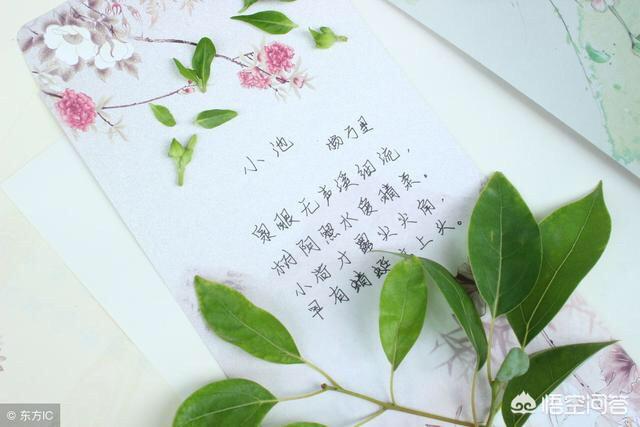 小池 杨万里
泉眼无声溪细流,
树阴照水爱晴柔。
小荷才露尖尖角,
早有蜻蜓立上头。
© 东方IC
悟空问答